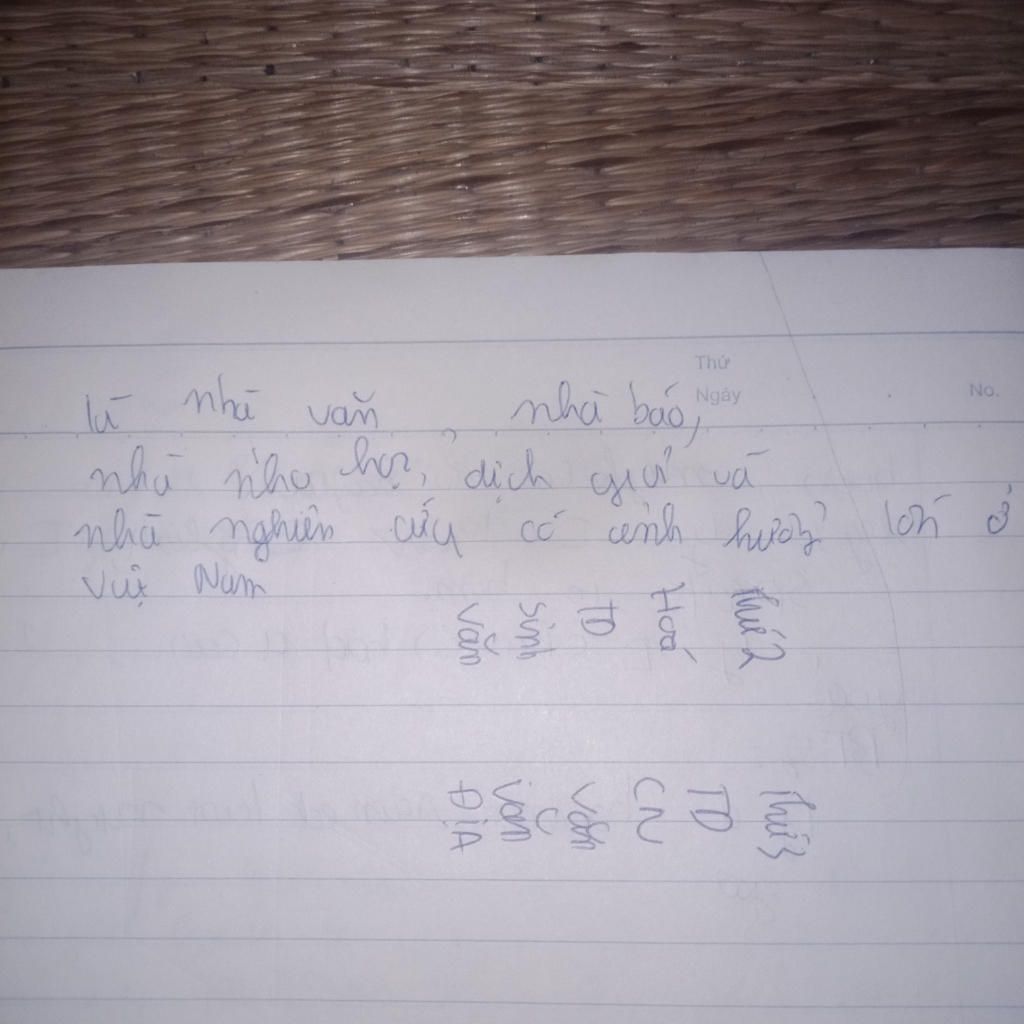 Thứ
Ngày
No.
là nhà văn , nhà báo,
nhà nho học, dịch giả và
nhà nghiên cứu có ảnh hưởng lớn ở
Việt Nam
Thứ 2
Hoá
TD
Sinh
Văn
Thứ 3
TD
CN
Văn
Văn
ĐỊA